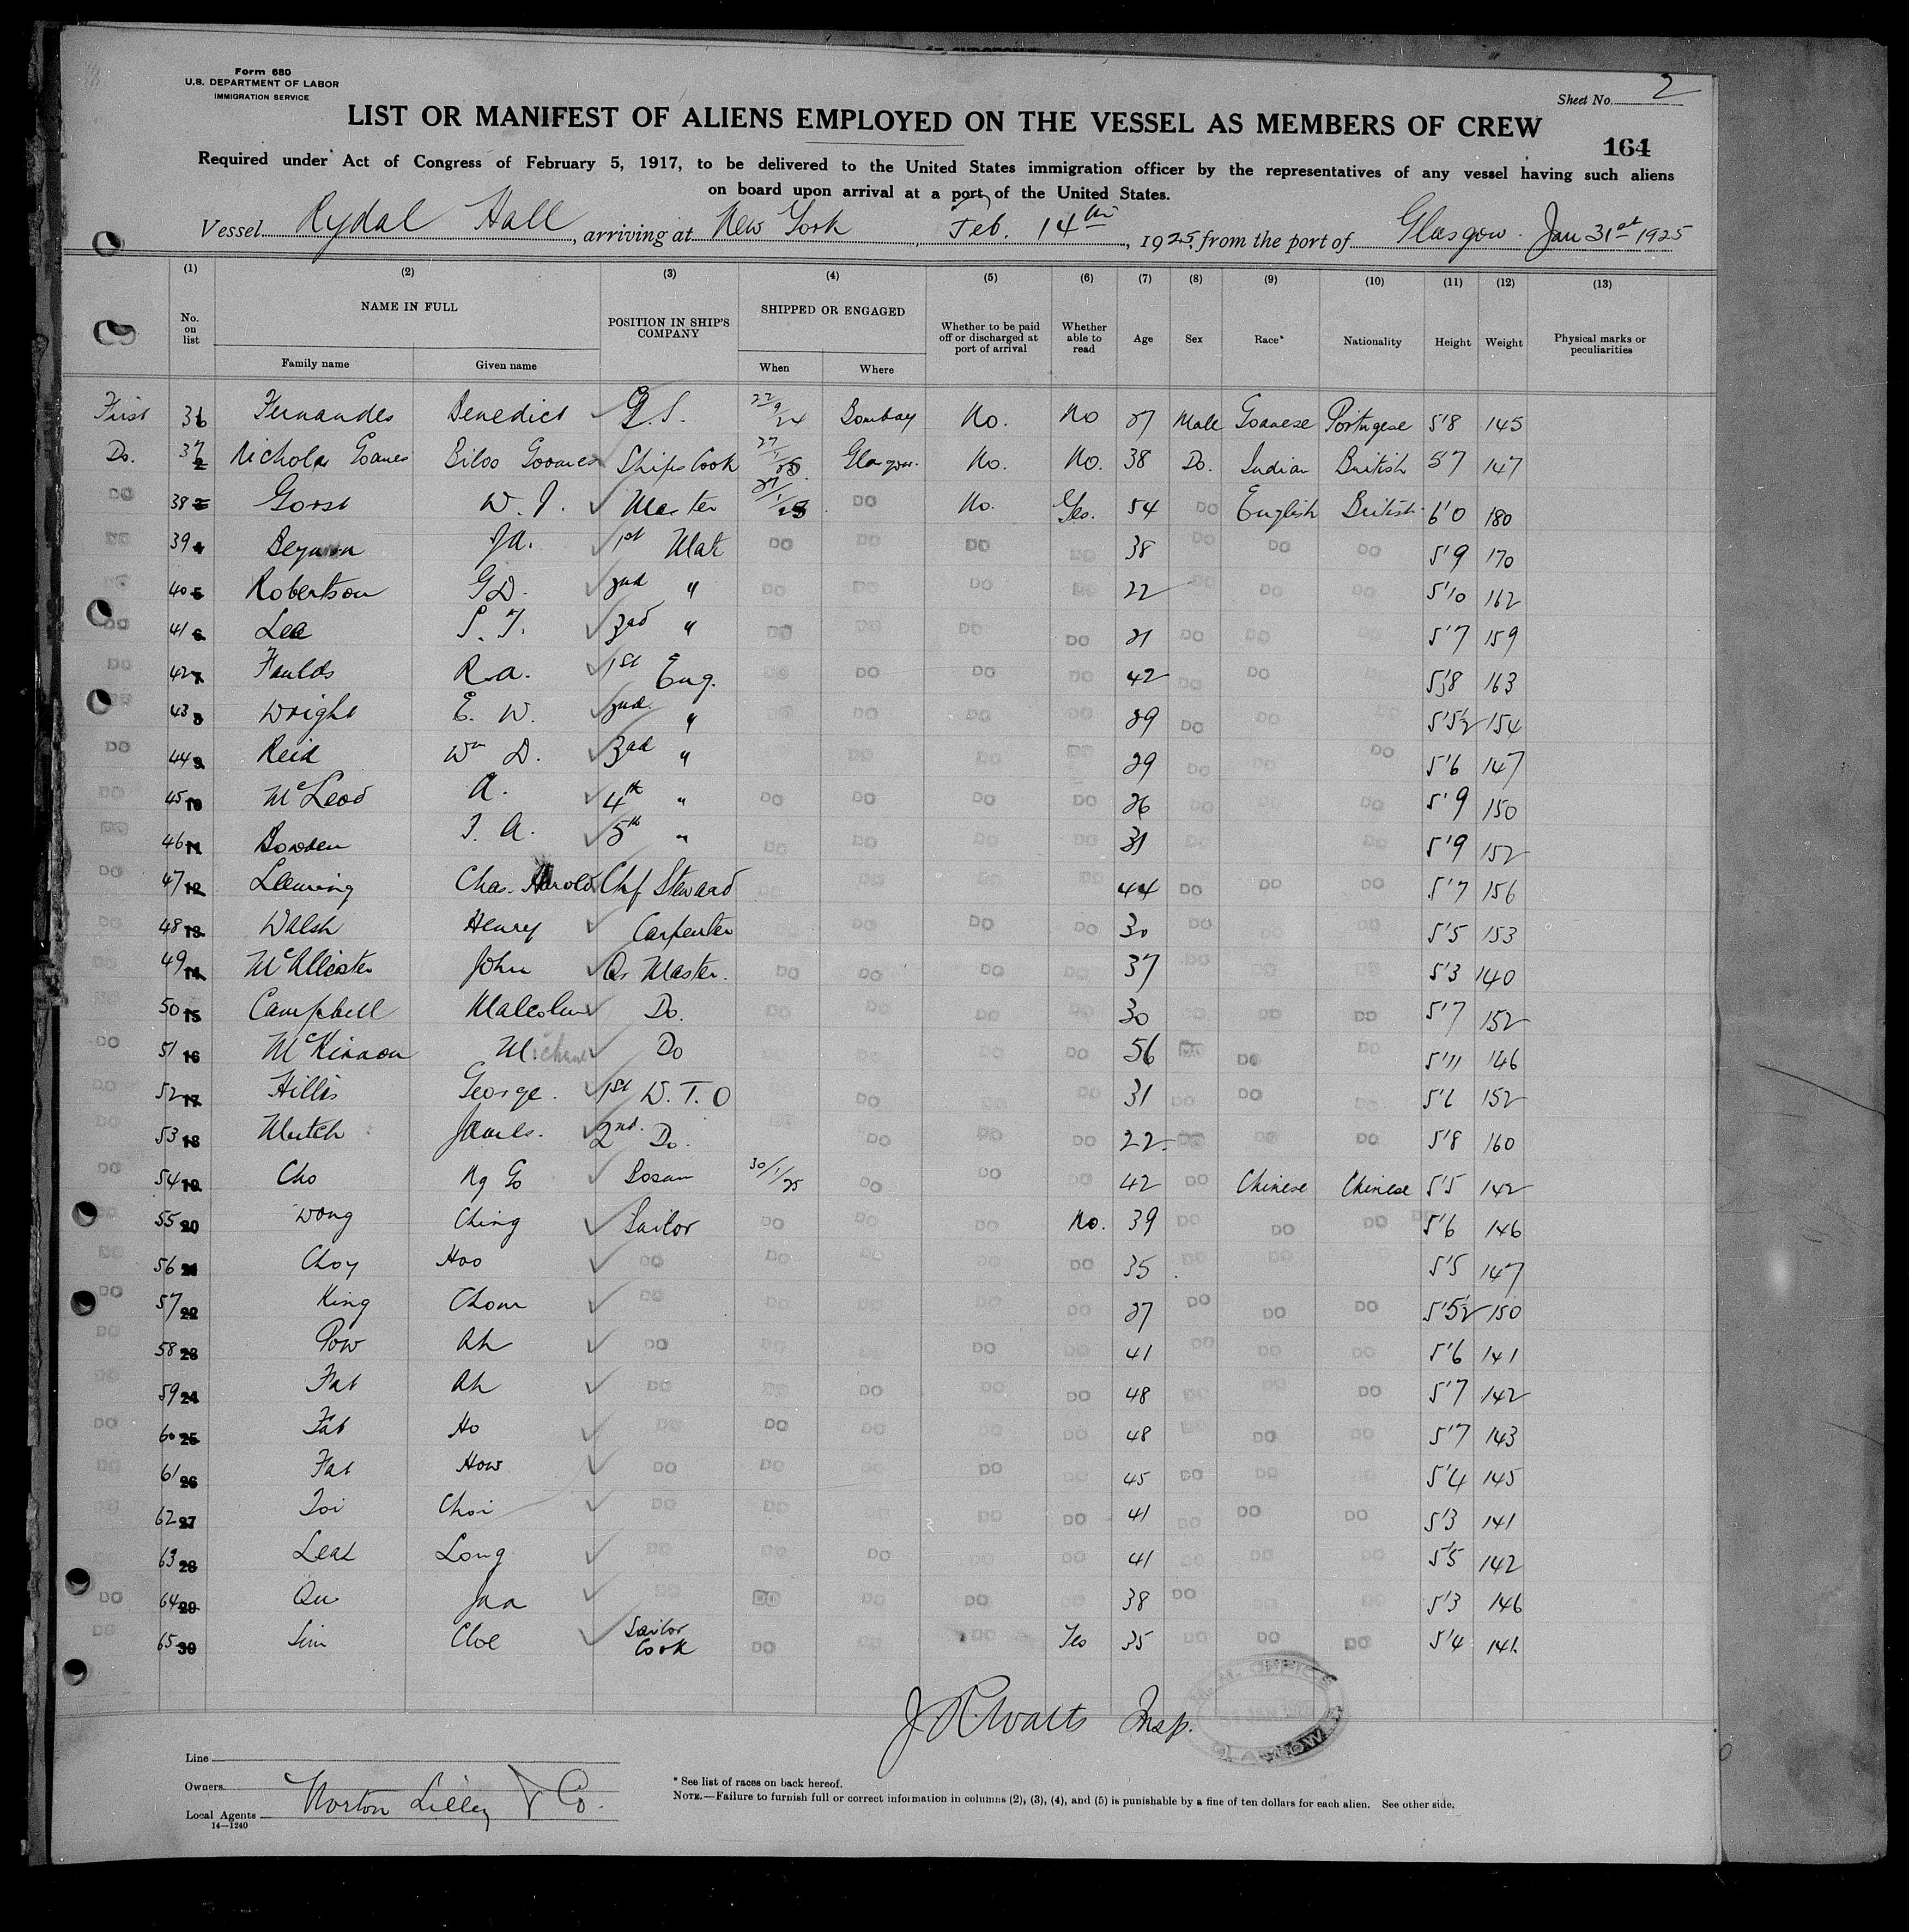 Form 680
U.S. DEPARTMENT OF LABOR
IMMIGRATION SERVICE
Sheet No. 2
LIST OR MANIFEST OF ALIENS EMPLOYED ON THE VESSEL AS MEMBERS OF CREW
164
Required under Act of Congress of February 5, 1917, to be delivered to the United States immigration officer by the representatives of any vessel having such aliens
on board upon arrival at a port of the United States.
Vessel Rydal Hall, arriving at New York, Feb. 14th, 1925, from the port of Glasgow. Jan 31st 1925
(1) (2) (3) (4) (5) (6) (7) (8) (9) (10) (11) (12) (13)
No. on list NAME IN FULL POSITION IN SHIP'S COMPANY SHIPPED OR ENGAGED Whether to be paid off or discharged at port of arrival Whether able to read Age Sex Race* Nationality Height Weight Physical marks or peculiarities
Family name Given name When Where
First 36 Fernandes Benedict G.S. 22/9/24 Bombay No. No 27 Male Goanese Portugese 5'8 145
Do. 37 Nicholas Goanes Ships Cook 27/1/25 Glasgow. No. No. 38 Do. Indian British 5'7 147
DO 38 Gorst W. J. Master 27/1/25 DO No. Yes. 54 DO English British 6'0 180
DO 39 JA. 1st Mate DO DO DO DO 38 DO DO DO 5'9 170
DO 40 Robertson G D. 2nd " DO DO DO DO 22 DO DO DO 5'10 162
DO 41 Lea S. T. 3rd " DO DO DO DO 21 DO DO DO 5'7 159
DO 42 Faulds R. A. 1st Eng. DO DO DO DO 42 DO DO 5'8 163
DO 43 Wright E. W. 2nd " DO DO DO DO 29 DO DO DO 5'5½ 154
DO 44 Reid Wm D. 3rd " DO DO DO DO 29 DO DO DO 5'6 147
DO 45 McLeod A. 4th " DO DO DO DO 26 DO DO DO 5'9 150
DO 46 Bowden A. 5th " DO DO DO DO 31 DO DO DO 5'9 152
DO 47 Leaming Chas. Harold Chf Steward DO DO DO DO 44 DO DO DO 5'7 156
DO 48 Walsh Henry Carpenter DO DO DO DO 30 DO DO DO 5'5 153
DO 49 McAllister John Qr Master. DO DO DO DO 37 DO DO DO 5'3 140
DO 50 Campbell Malcolm Do. DO DO DO DO 30 DO DO DO 5'7 152
DO 51 McKinnon Michael Do DO DO DO DO 56 DO DO DO 5'11 146
DO 52 Hillis George. 1st W. T. O DO DO DO 31 DO DO DO 5'6 152
DO 53 Mutch James. 2nd. Do. DO DO DO DO 22 DO DO DO 5'8 160
DO 54 Cho Ng Go Bosun 30/1/25 DO DO DO 42 DO Chinese Chinese 5'5 142
DO 55 Wong Ching Sailor DO DO DO No. 39 DO DO DO 5'6 146
DO 56 Choy Hoo DO DO DO DO DO 35 DO DO 5'5 147
DO 57 King Chow DO DO DO DO DO 27 DO DO DO 5'5½ 150
DO 58 Pow Ah DO DO DO DO DO 41 DO DO DO 5'6 141
DO 59 Fat Ah DO DO DO DO DO 48 DO DO DO 5'7 142
DO 60 Fat Ho DO DO DO DO DO 48 DO DO DO 5'7 143
DO 61 Fat How DO DO DO DO DO 45 DO DO DO 5'4 145
DO 62 Toi Choi DO DO DO DO DO 41 DO DO DO 5'3 141
DO 63 Leat Long DO DO DO DO DO 41 DO DO DO 5'5 142
DO 64 DO DO DO DO DO 38 DO DO DO 5'3 146
DO 65 Sim Cloe Sailor Cook DO DO DO Yes 35 DO DO DO 5'4 141
J R Watts Insp.
GLASGOW
Line
Owners
Local Agents Norton Lilley & Co.
14—1240
* See list of races on back hereof.
NOTE.—Failure to furnish full or correct information in columns (2), (3), (4), and (5) is punishable by a fine of ten dollars for each alien. See other side.